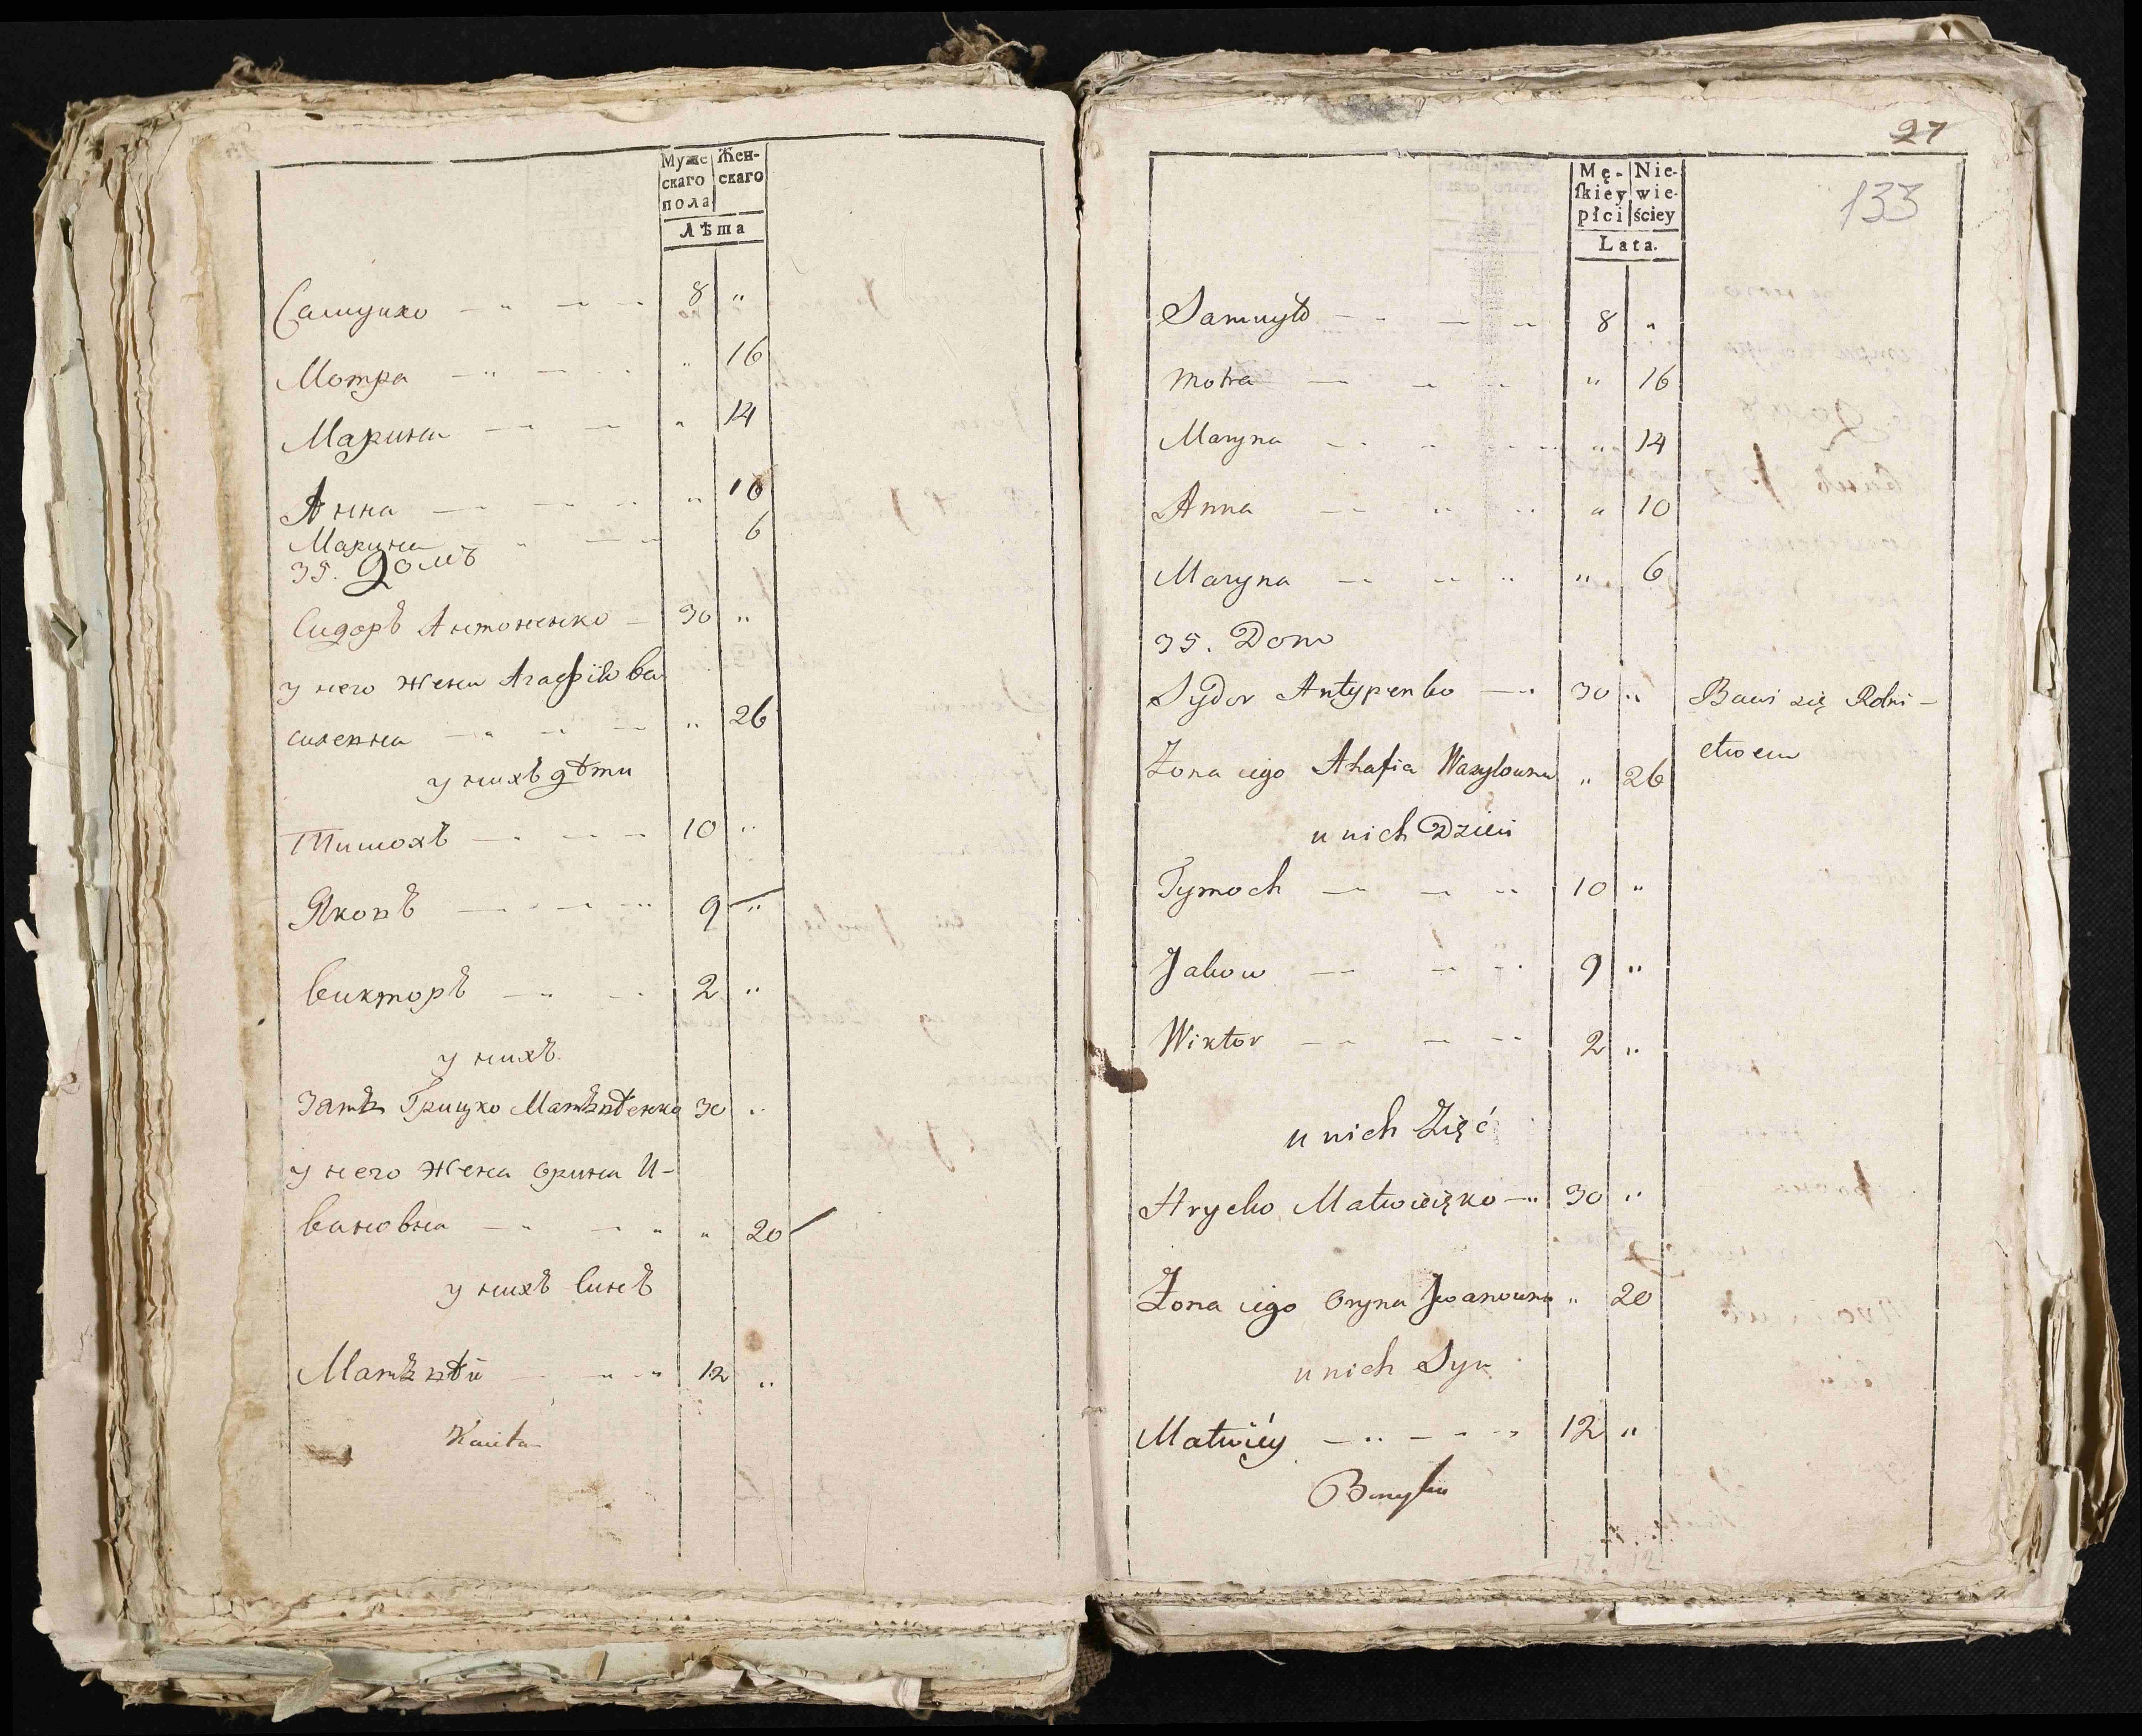 Муже Жен-
скаго скаго
пола
Лѣта
Самуило 8 "
Мотра " 16
Марина " 14
Анна " 10
Марина 6
35. Домъ
Сидоръ Антоненко 30 "
у него жена Агафія Ва
силевна " 26
у нихъ дѣти
Тимохъ 10 "
Яковъ 9 "
Викторъ 2 "
у нихъ
Зять Грицко Матвѣенко 30 "
у него жена Орина И-
вановна " 20
у нихъ Синъ
Матвѣй 12 "
27
133
Mę- Nie-
ſkiey wie-
płci ściey
Lata.
Samuyło 8 "
Motra " 16
Maryna " 14
Anna " 10
Maryna " 6
35. Dom
Sydor Antypenko 30 " Bawi się Rolni-
ctwem
Żona iego Ahafia Wasylowna " 26
u nich Dzieci
Tymoch 10 "
Jakow 9 "
Wiktor 2 "
u nich Zięć
Hrycko Matwieięko 30 "
Żona iego Oryna Jwanowna " 20
u nich Syn
Matwiéy 12 "